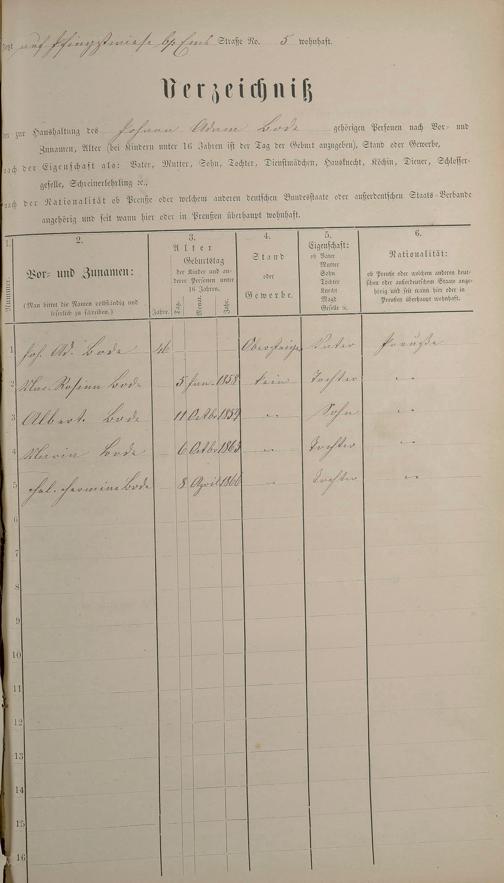 auf Pfingstwiese bp Ems Straße No. 5 wohnhaft.
Verzeichniß
zur Haushaltung des Johann Adam Bode gehörigen Personen nach Vor- und
Zunamen, Alter (bei Kindern unter 16 Jahren ist der Tag der Geburt anzugeben), Stand oder Gewerbe,
nach der Eigenschaft als: Vater, Mutter, Sohn, Tochter, Dienstmädchen, Hausknecht, Köchin, Diener, Schlosser-
geselle, Schreinerlehrling ꝛc.,
nach der Nationalität ob Preuße oder welchem anderen deutschen Bundesstaate oder außerdeutschen Staats-Verbande
angehörig und seit wann hier oder in Preußen überhaupt wohnhaft.
1. 2. 3. 4. 5. 6.
Nummer.
Vor- und Zunamen:
(Man bittet die Namen vollständig und
leserlich zu schreiben.)
Alter
Geburtstag
der Kinder und an-
derer Personen unter
16 Jahren.
Jahre. Tag. Monat. Jahr.
Stand
oder
Gewerbe.
Eigenschaft:
ob Vater
Mutter
Sohn
Tochter
Knecht
Magd
Geselle ꝛc.
Nationalität:
ob Preuße oder welchem anderen deut-
schen oder außerdeutschen Staate ange-
hörig und seit wann hier oder in
Preußen überhaupt wohnhaft.
1 Joh. Ad. Bode 46 Obersteiger Vater Preuße
2 Mar. Rosina Bode 5 Jan. 1858 kein Tochter "
3 Albert Bode 11 Octbr 1859 " Sohn "
4 Maria Bode 6 Octbr 1863 " Tochter "
5 Hermine Bode 8 April 1866 " Tochter "
6
7
8
9
10
11
12
13
14
15
16